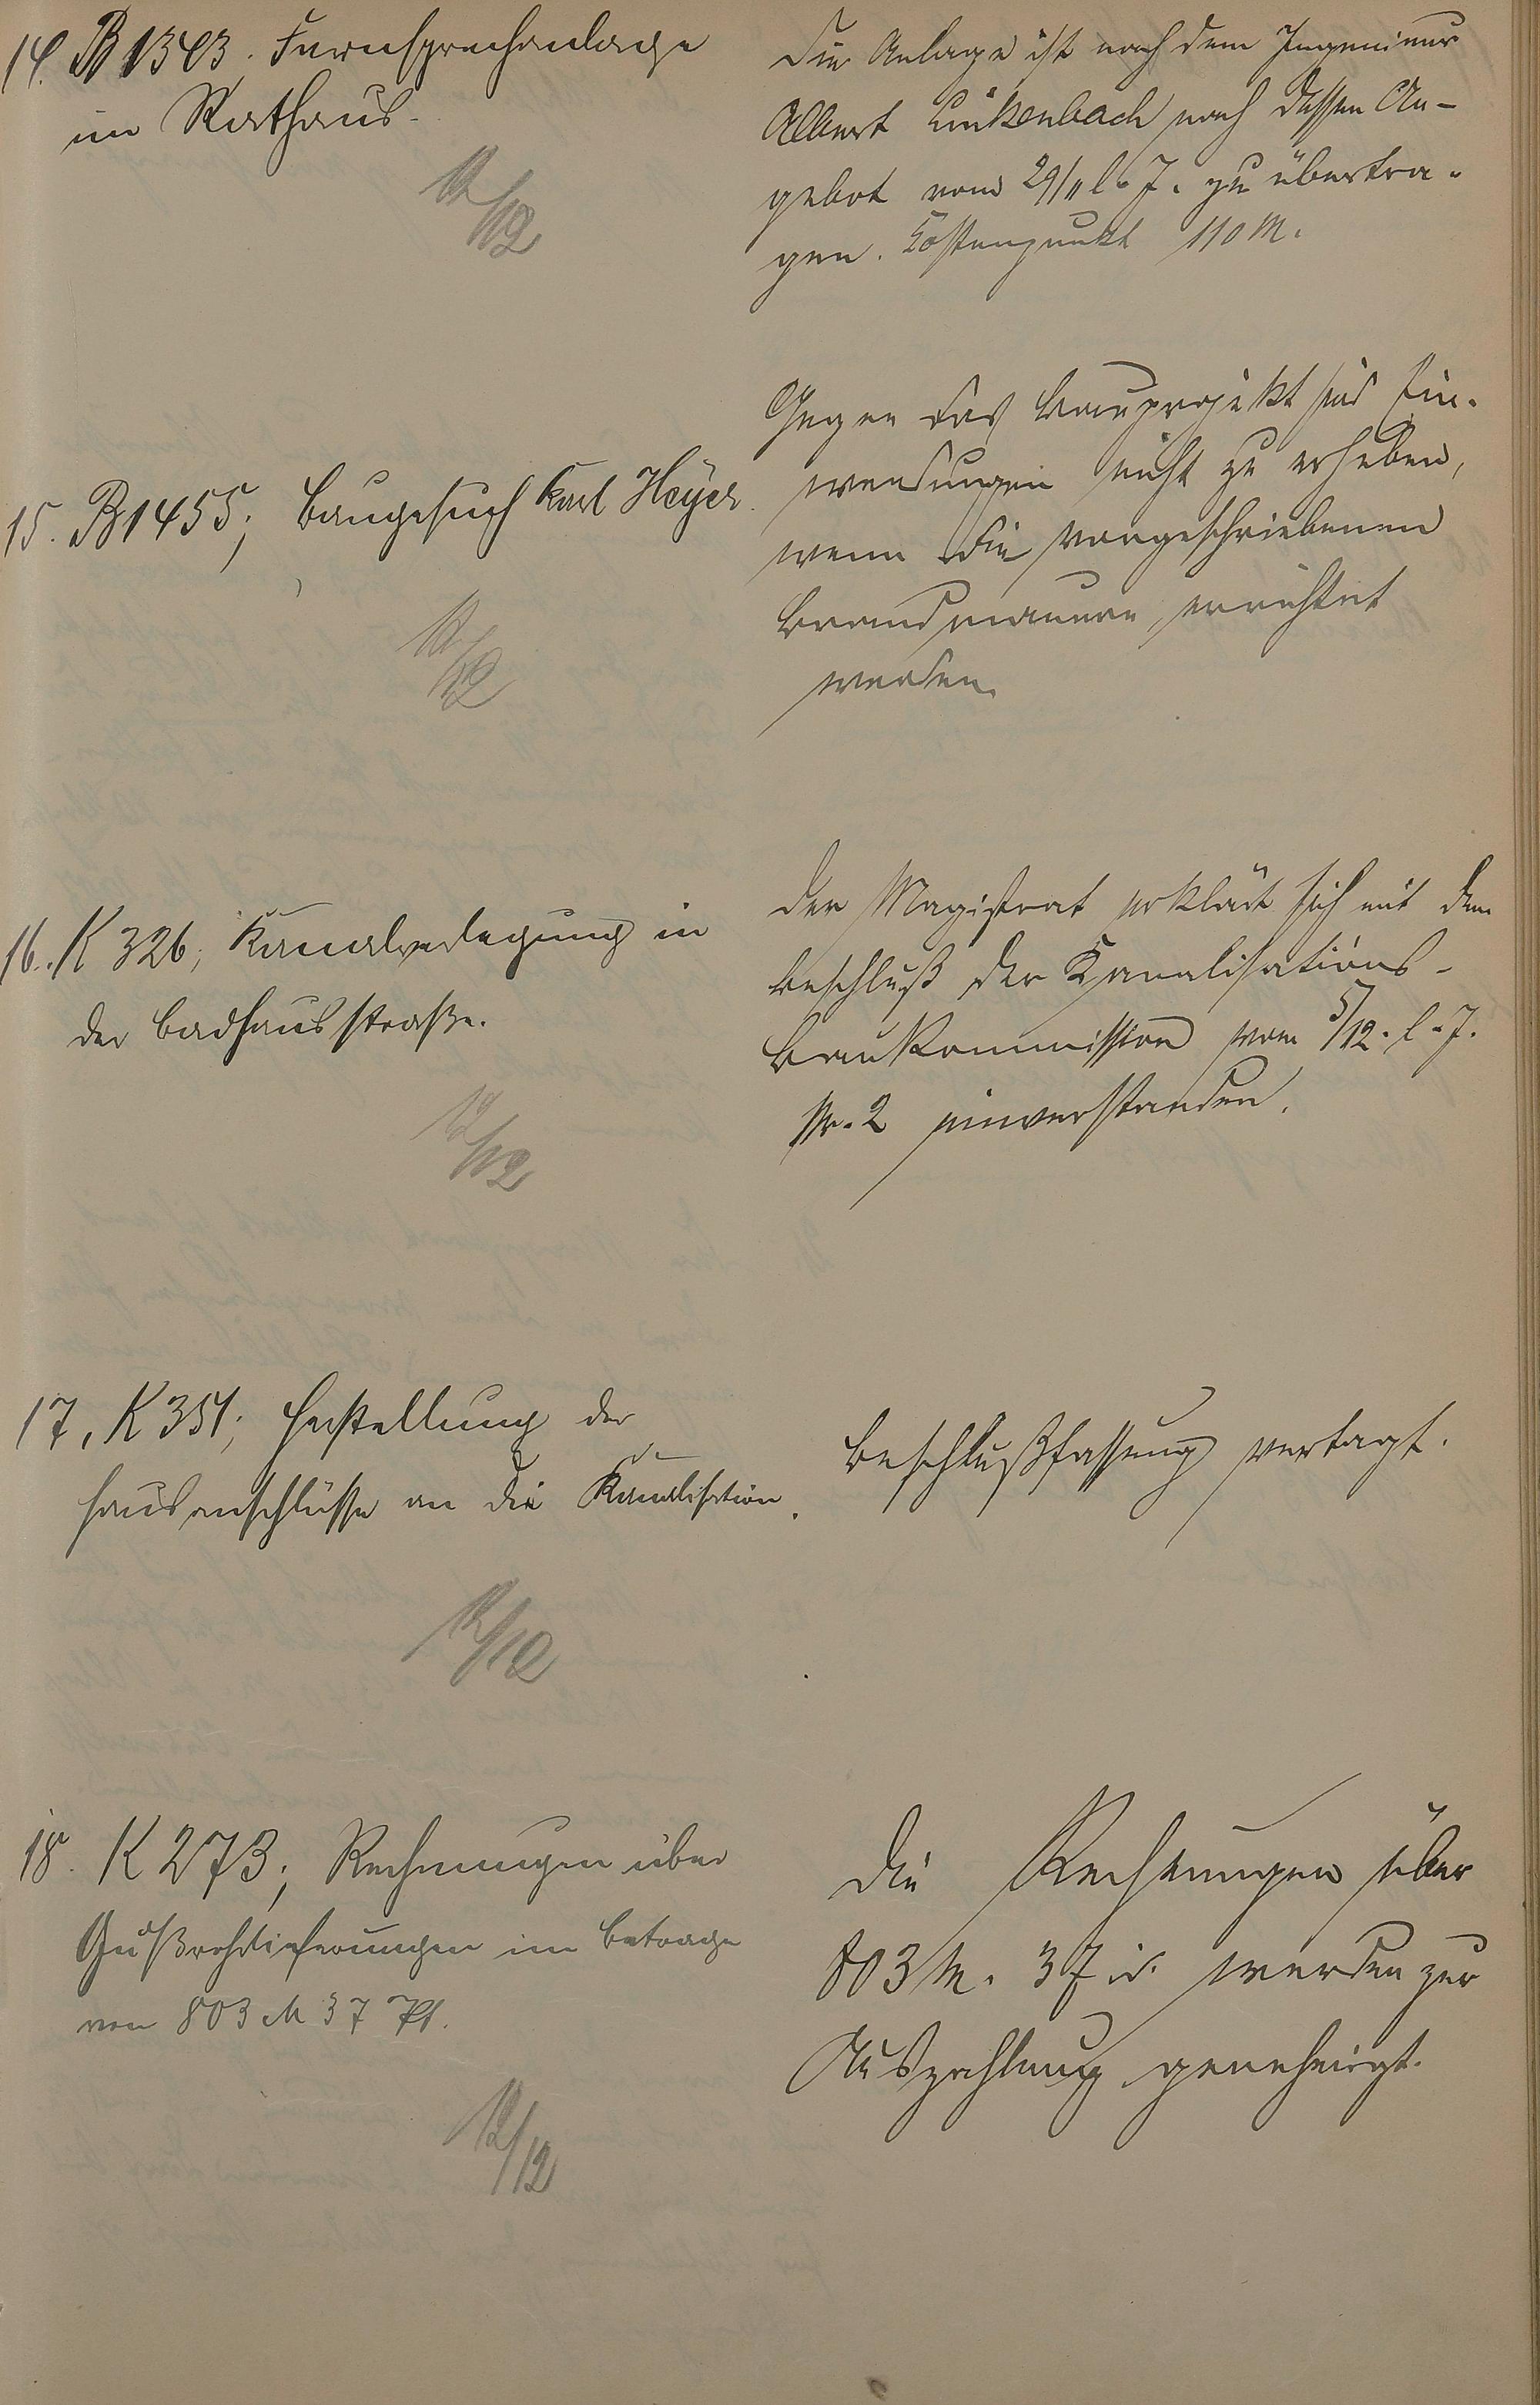 14. B 1343. Fernsprechanlage
im Rathaus.
12/12
Die Anlage ist nach dem Ingenieur
Albert Lückenbach nach dessen An-
gebot vom 29/11 l. J. zu übertra-
gen. Kostenpunkt 110 M.
15. B 1455; Baugesuch Karl Heyer.
12/12
Gegen das Bauprojekt sind Ein-
wendungen nicht zu erheben,
wenn die vorgeschriebenen
Brandmauern errichtet
werden.
16. K 326; Kanalverlegung in
der Badhausstraße.
12/12
Der Magistrat erklärt sich mit dem
Beschluß der Kanalisations-
baukommission vom 5/12. l. J.
Nr. 2 einverstanden.
17. K 351; Herstellung der
Hausanschlüsse an die Kanalisation.
12/12
Beschlußfassung vertagt.
18. K 273; Rechnungen über
Gußrohrlieferungen im Betrage
von 803 M 37 Pf.
12/12
Die Rechnungen über
803 M. 37 d. werden zur
Auszahlung genehmigt.